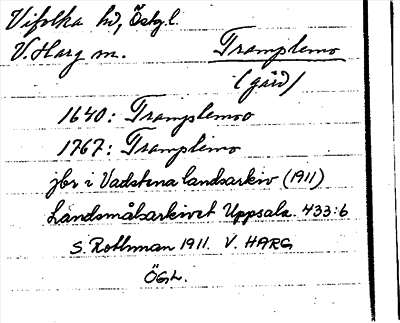 Vifolka hd, Östg.l.
V. Harg sn. Tramplemo
(gård)
1640: Tramplemoo
1767: Tramplimo
jbr i Vadstena landsarkiv (1911)
Landsmålsarkivet Uppsala 433:6
S. Rothman 1911. V. HARG
ÖGtl.